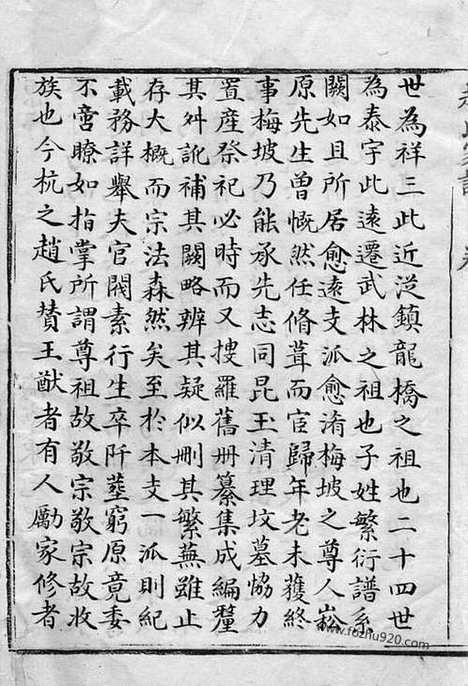 世為祥三此近涖鎮龍橋之祖也二十四世
為泰宇此遠遷武林之祖也子姓繁衍譜系
闕如且所居愈遠支派愈淆梅坡之尊人崧
原先生曽慨然任脩葺而宦歸年老未獲終
事梅坡乃能承先志同昆玉清理坟墓恊力
置産祭祀必時而又搜羅舊册纂集成編釐
其舛訛補其闕略辨其疑似刪其繁蕪雖止
存大概而宗法森然矣至於本支一派則紀
載務詳舉夫官閥素行生卒阡塟窮原竟委
不啻瞭如指掌所謂尊祖故敬宗敬宗故收
族也今杭之趙氏賛王猷者有人勵家修者
www.fozhu920.com